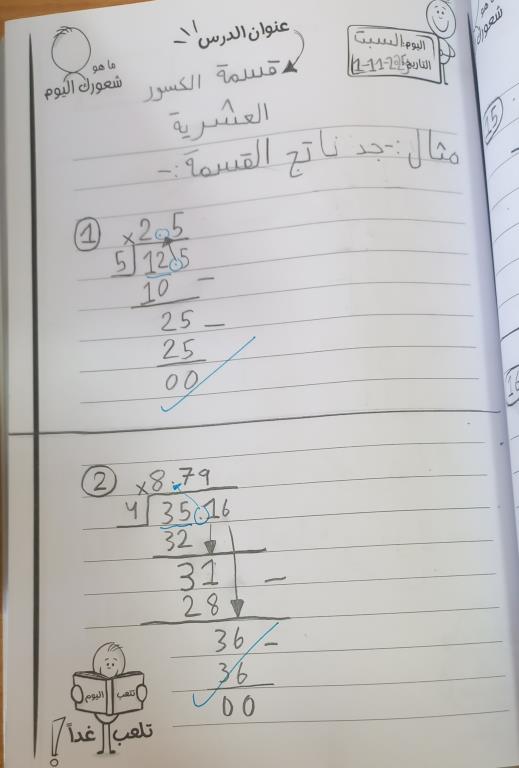 عنوان الدرس
اليوم: السبت
التاريخ: 1-11-2025
ما هو
شعورك اليوم
قسمة الكسور
العشرية
مثال :- جد ناتج القسمة :-
1
× 2.5
5 12.5
10 –
25 –
25
00
2
× 8.79
4 35.16
32
31 –
28
36 –
36
00
اليوم تلعب
تلعب غداً!
15